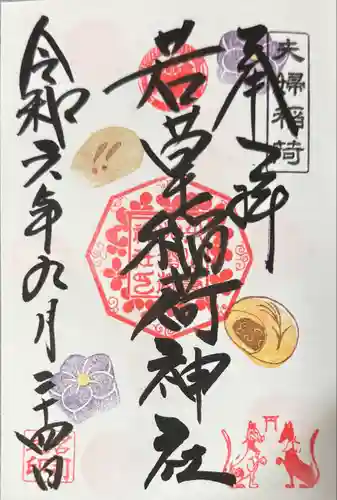 夫婦稲荷
奉拝
若草稲荷神社
令和六年九月二十四日